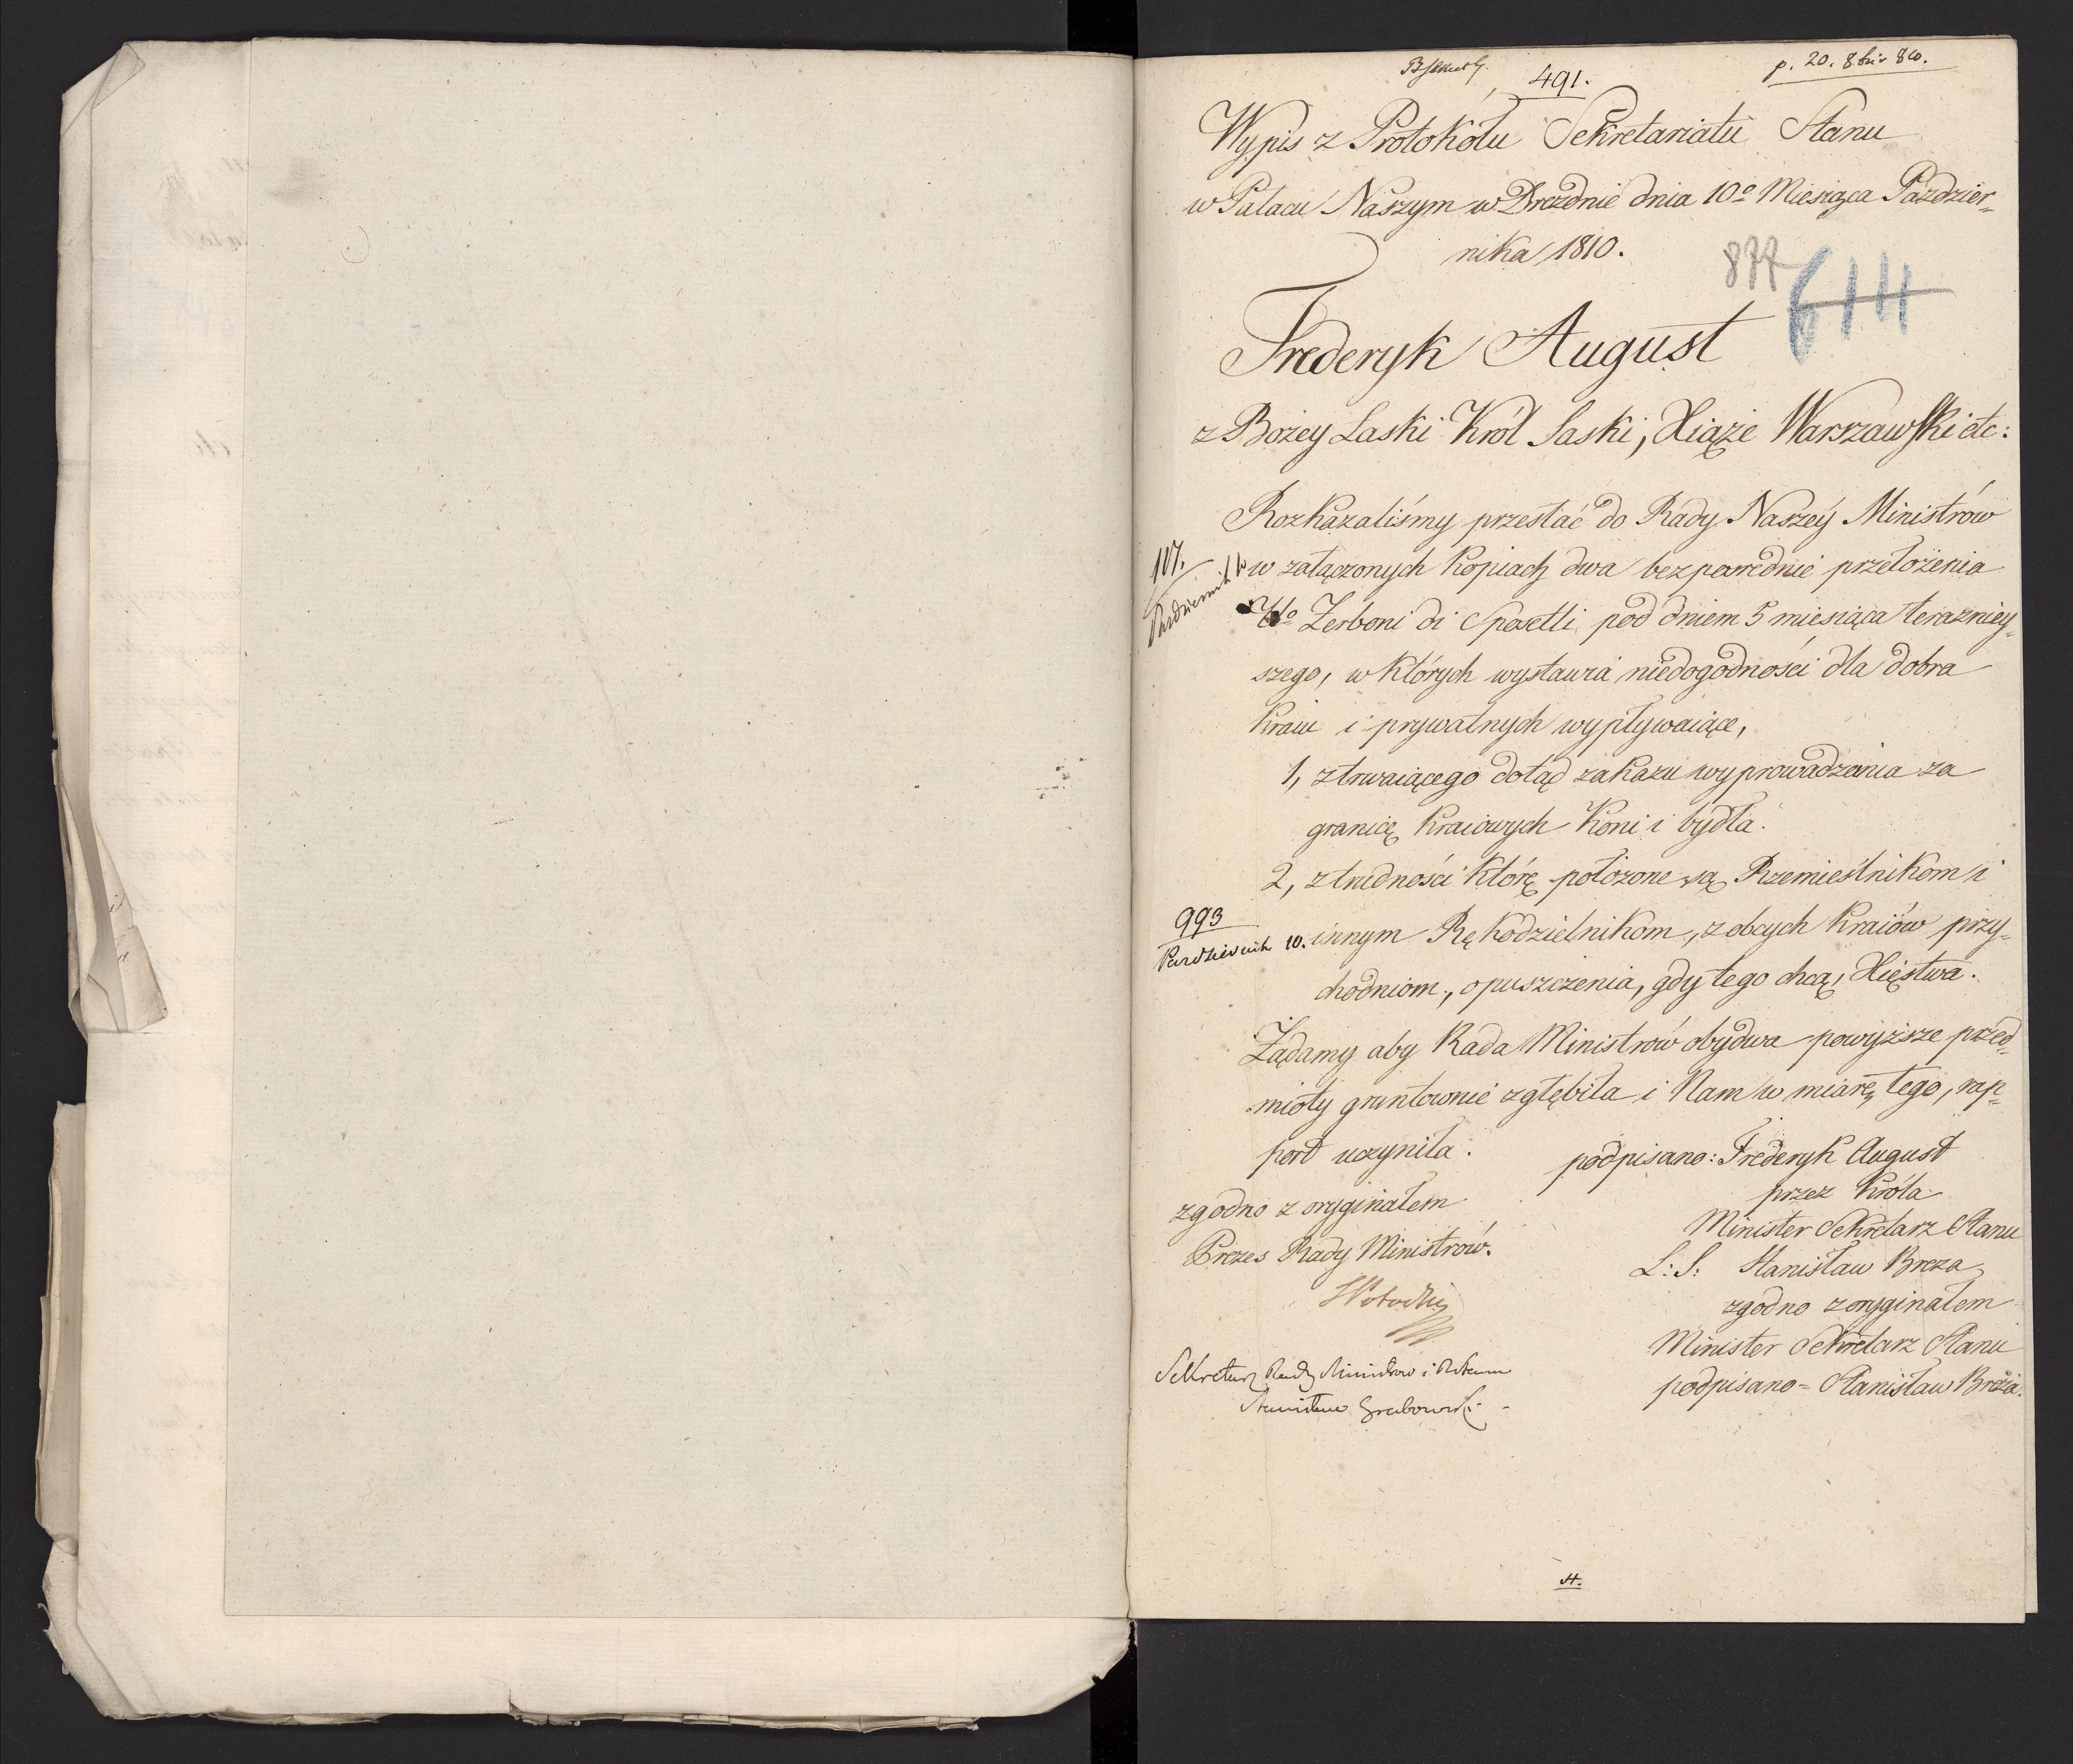 491.
p. 20. 8br 810.
Wypis z Protokółu Sekretariatu Stanu
w Pałacu Naszym w Dreznie dnia 10º Miesiąca Paździer=
nika 1810.
877
Frederyk August
z Bożey Łaski Król Saski, Xiąże Warszawski etc:
Rozkazaliśmy przesłać do Rady Naszéy Ministrów
w załączonych kopiach dwa bezpośrednie przełożenia
Zerboni di Sposetti pod dniem 5 miesiąca teraźniey=
szego, w których wystawia niedogodności dla dobra
kraiu i prywatnych wypływaiące,
1, z trwaiącego dotąd zakazu wyprowadzenia za
granicę kraiowych koni i bydła.
2, z trudności które położone są Rzemieślnikom i
993
Październik 10.
innym Rękodzielnikom, z obcych kraiów przy=
chodniom, opuszczenia, gdy tego chcą, Xięstwa.
Żądamy aby Rada Ministrów obydwa powyższe przed=
mioty gruntownie zgłębiła i Nam w miarę tego, rap=
port uczyniła.
podpisano: Frederyk August
przez Króla
Minister Sekretarz Stanu
L: S: Stanisław Breza
zgodno z oryginałem
Minister Sekretarz Stanu
podpisano = Stanisław Breza.
zgodno z oryginałem
Prezes Rady Ministrów.
Sekretarz Rady Ministrów i Stanu
Stanisław Grabowski